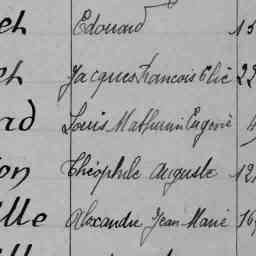 et Edouard 15
et Jacques Francois Elie 22
rd Louis Mathurin Eugene
on Théophile Auguste 12
ille Alexandre Jean Marie 16